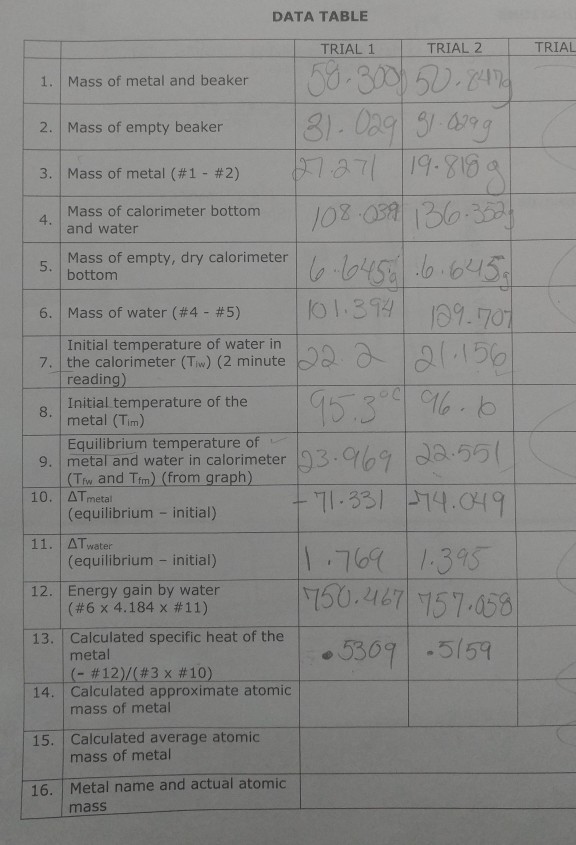 DATA TABLE
TRIAL 1 TRIAL 2 TRIAL
1. Mass of metal and beaker 58.300g 50.847g
2. Mass of empty beaker 31.029 31.029g
3. Mass of metal (#1 - #2) 27.271 19.818 g
4. Mass of calorimeter bottom
and water 108.039 136.352g
5. Mass of empty, dry calorimeter
bottom 6.645g 6.645g
6. Mass of water (#4 - #5) 101.394 129.707
7. Initial temperature of water in
the calorimeter (Tiw) (2 minute
reading) 22.2 21.156
8. Initial temperature of the
metal (Tim) 95.3°C 96.6
9. Equilibrium temperature of
metal and water in calorimeter
(Tfw and Tfm) (from graph) 23.969 22.551
10. ΔTmetal
(equilibrium – initial) -71.331 -74.049
11. ΔTwater
(equilibrium – initial) 1.769 1.395
12. Energy gain by water
(#6 x 4.184 x #11) 750.467 757.058
13. Calculated specific heat of the
metal
(- #12)/(#3 x #10) .5309 .5159
14. Calculated approximate atomic
mass of metal
15. Calculated average atomic
mass of metal
16. Metal name and actual atomic
mass